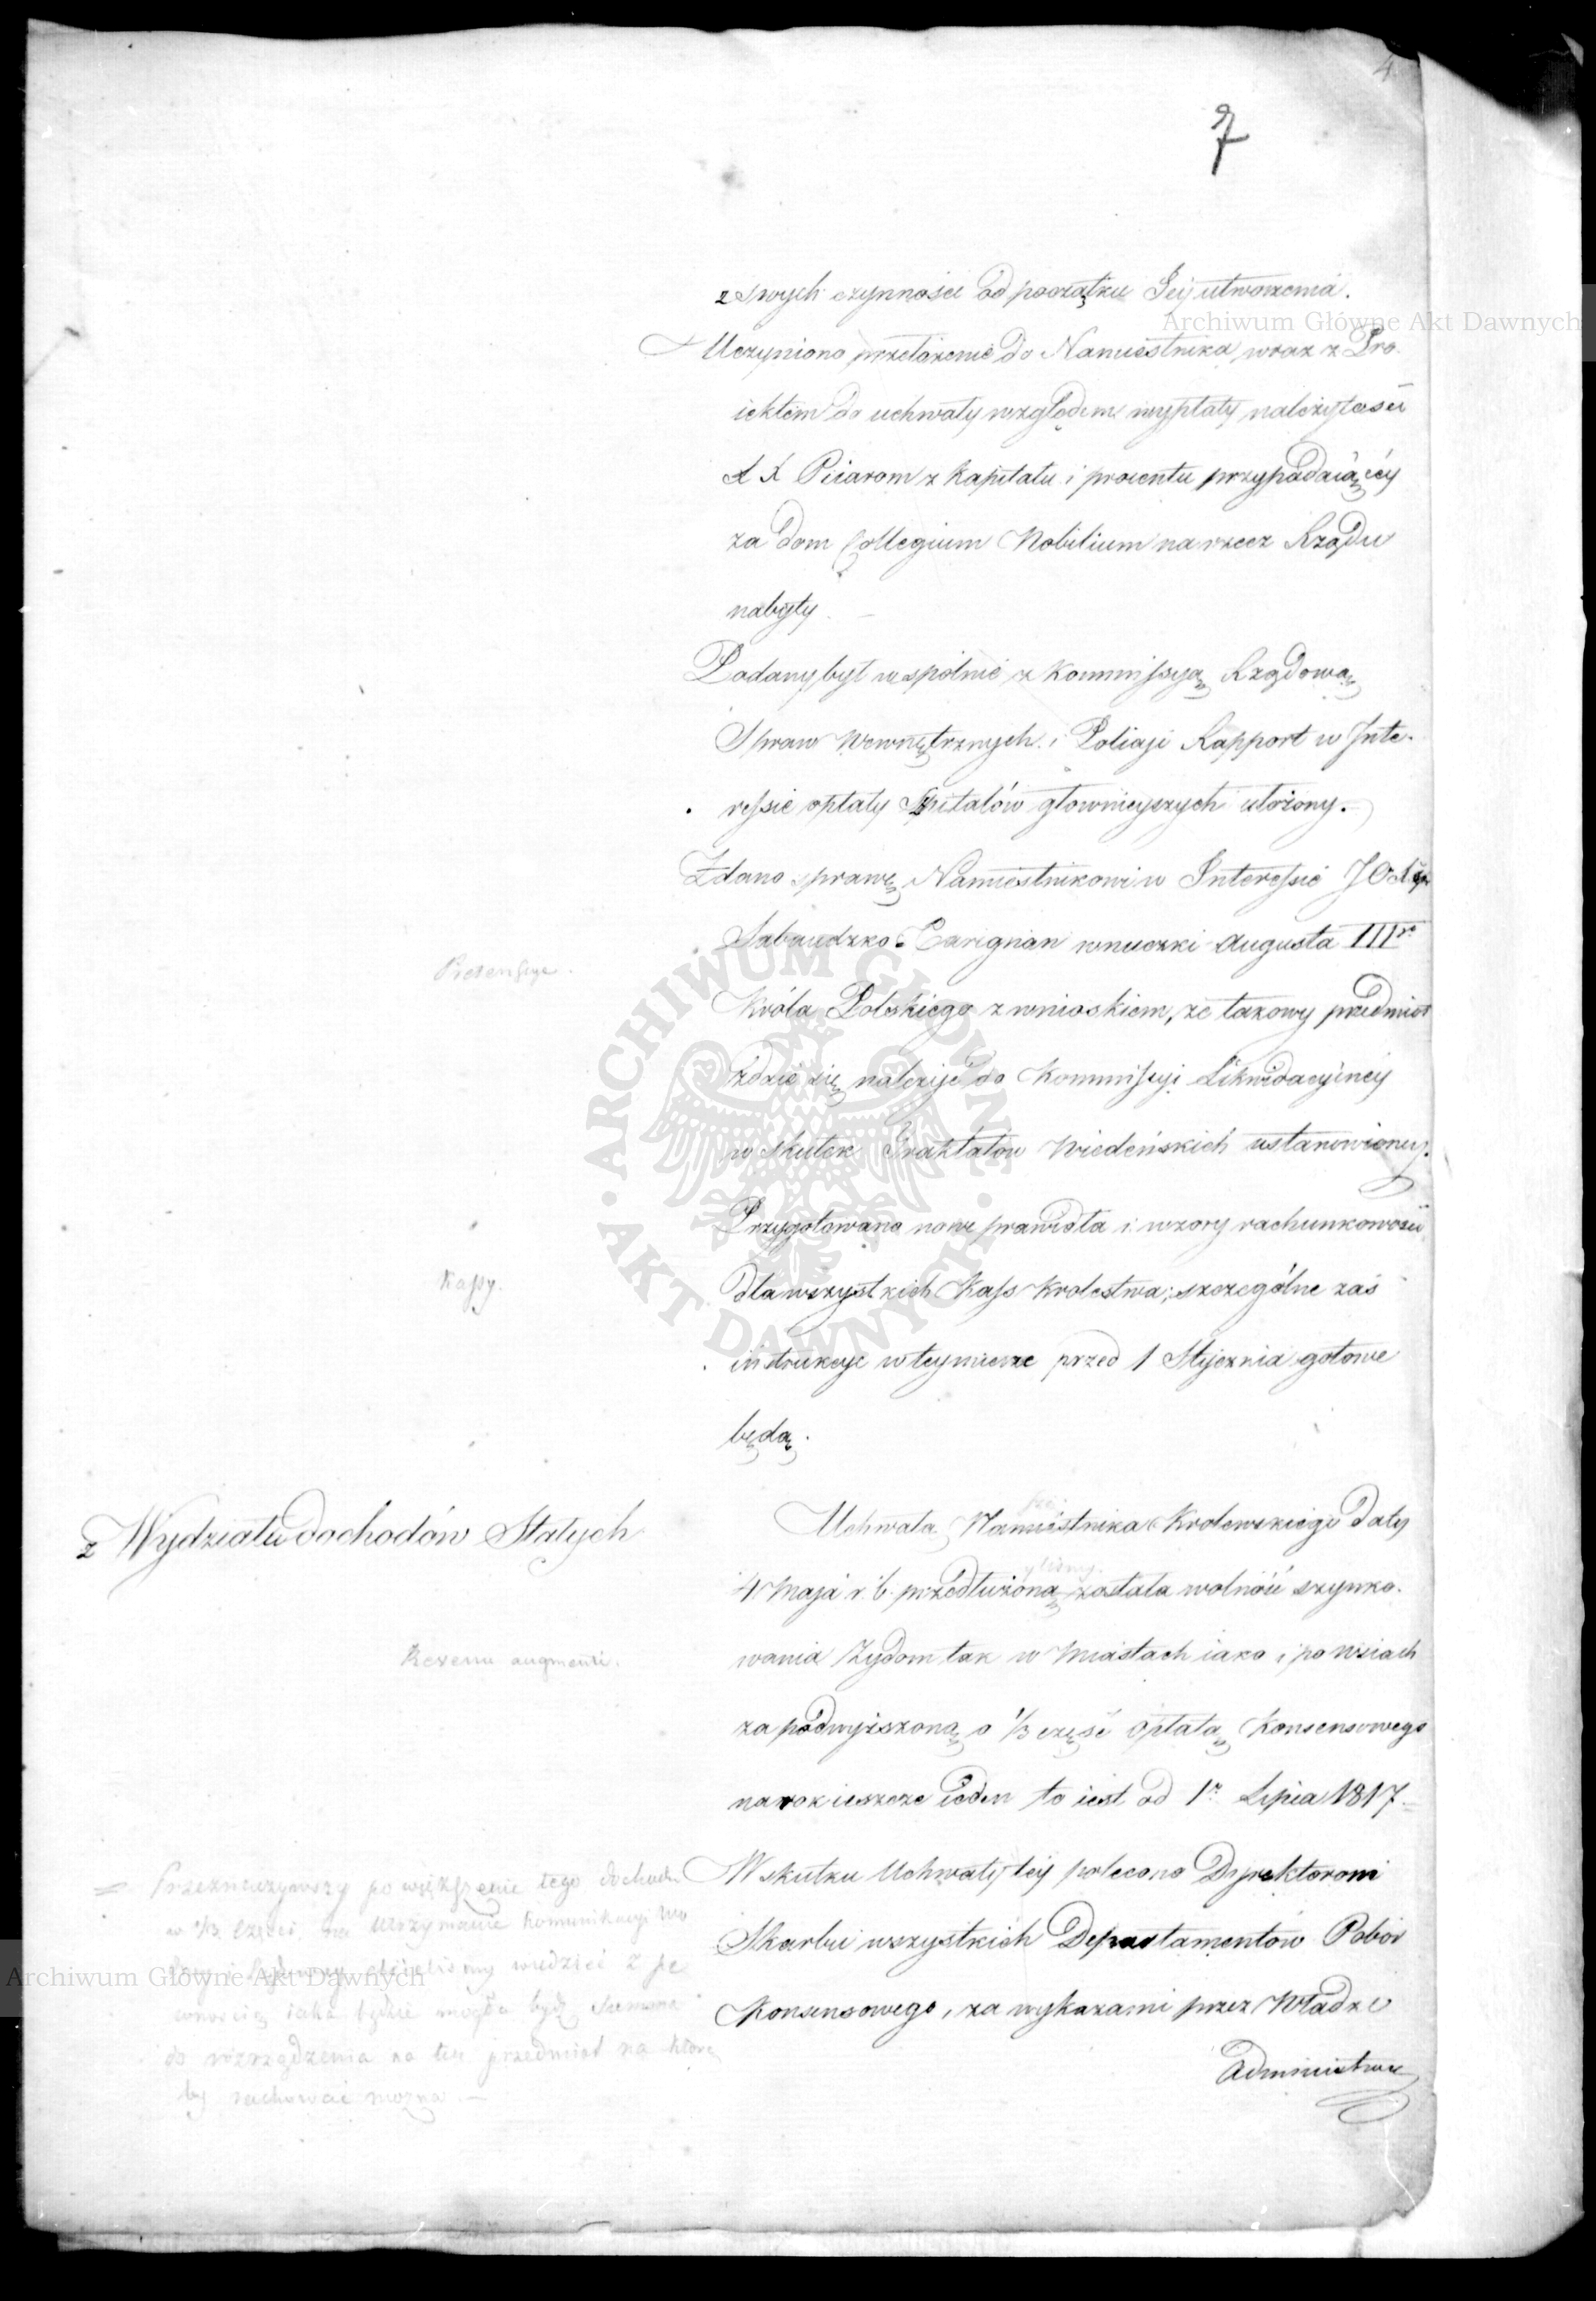 4
7
z swych czynności od początku Jej utworzenia.
Uczyniono przełożenie do Namiestnika, wraz z Pro-
iektem do uchwały względem wypłaty należytości
XX Piiarom z kapitału i procentu przypadaiącéy
za dom Collegium Nobilium na rzecz Rządu
nabyty. —
Podany był wspólnie z Kommissyą Rządową
Spraw Wewnętrznych i Policyi Rapport w Inte-
ressie opłaty Szpitalów głownieyszych ułożony. —
Zdano sprawę Namiestnikowi w Interessie JO
Sabaudzko Carignan wnuczki Augusta IIIo
Pretensye.
Króla Polskiego z wnioskiem, że takowy przedmiot
zdaie się należeć do Kommissyi Likwidacyinéy
w skutek Traktatów Wiedeńskich ustanowioney.
Przygotowano nowe prawidła i wzory rachunkowości
Kassy.
dla wszystkich Kass Krolestwa; szczególne zaś
instrukcye w tey mierze przed 1 Stycznia gotowe
będą.
z Wydziału dochodów Stałych
Uchwałą Namiestnika Krolewskiego daty
4 Maja r. b. przedłużoną została wolność szynko-
wania Żydom tak w Miastach iako i po wsiach
Revenu augmenté.
za podwyższoną o 1/3 część opłatą Konsensowego
na rok ieszcze ieden to iest od 1o Lipca 1817.
W skutku Uchwały téy polecono Dyrektorom
Skarbu wszystkich Departamentów Pobór
Konsensowego, za wykazami przez Władze
Administra
= Przeznaczywszy powiększenie tego dochodu
w 1/3 części, na utrzymanie komunikacyi wo
wiedzieć z pe
wnością iaka będzie mogła być summa
do rozrządzenia na ten przedmiot na którą
by rachować można. —
Archiwum Główne Akt Dawnych
Archiwum Główne Akt Dawnych
ARCHIWUM GŁÓWNE · AKT DAWNYCH ·